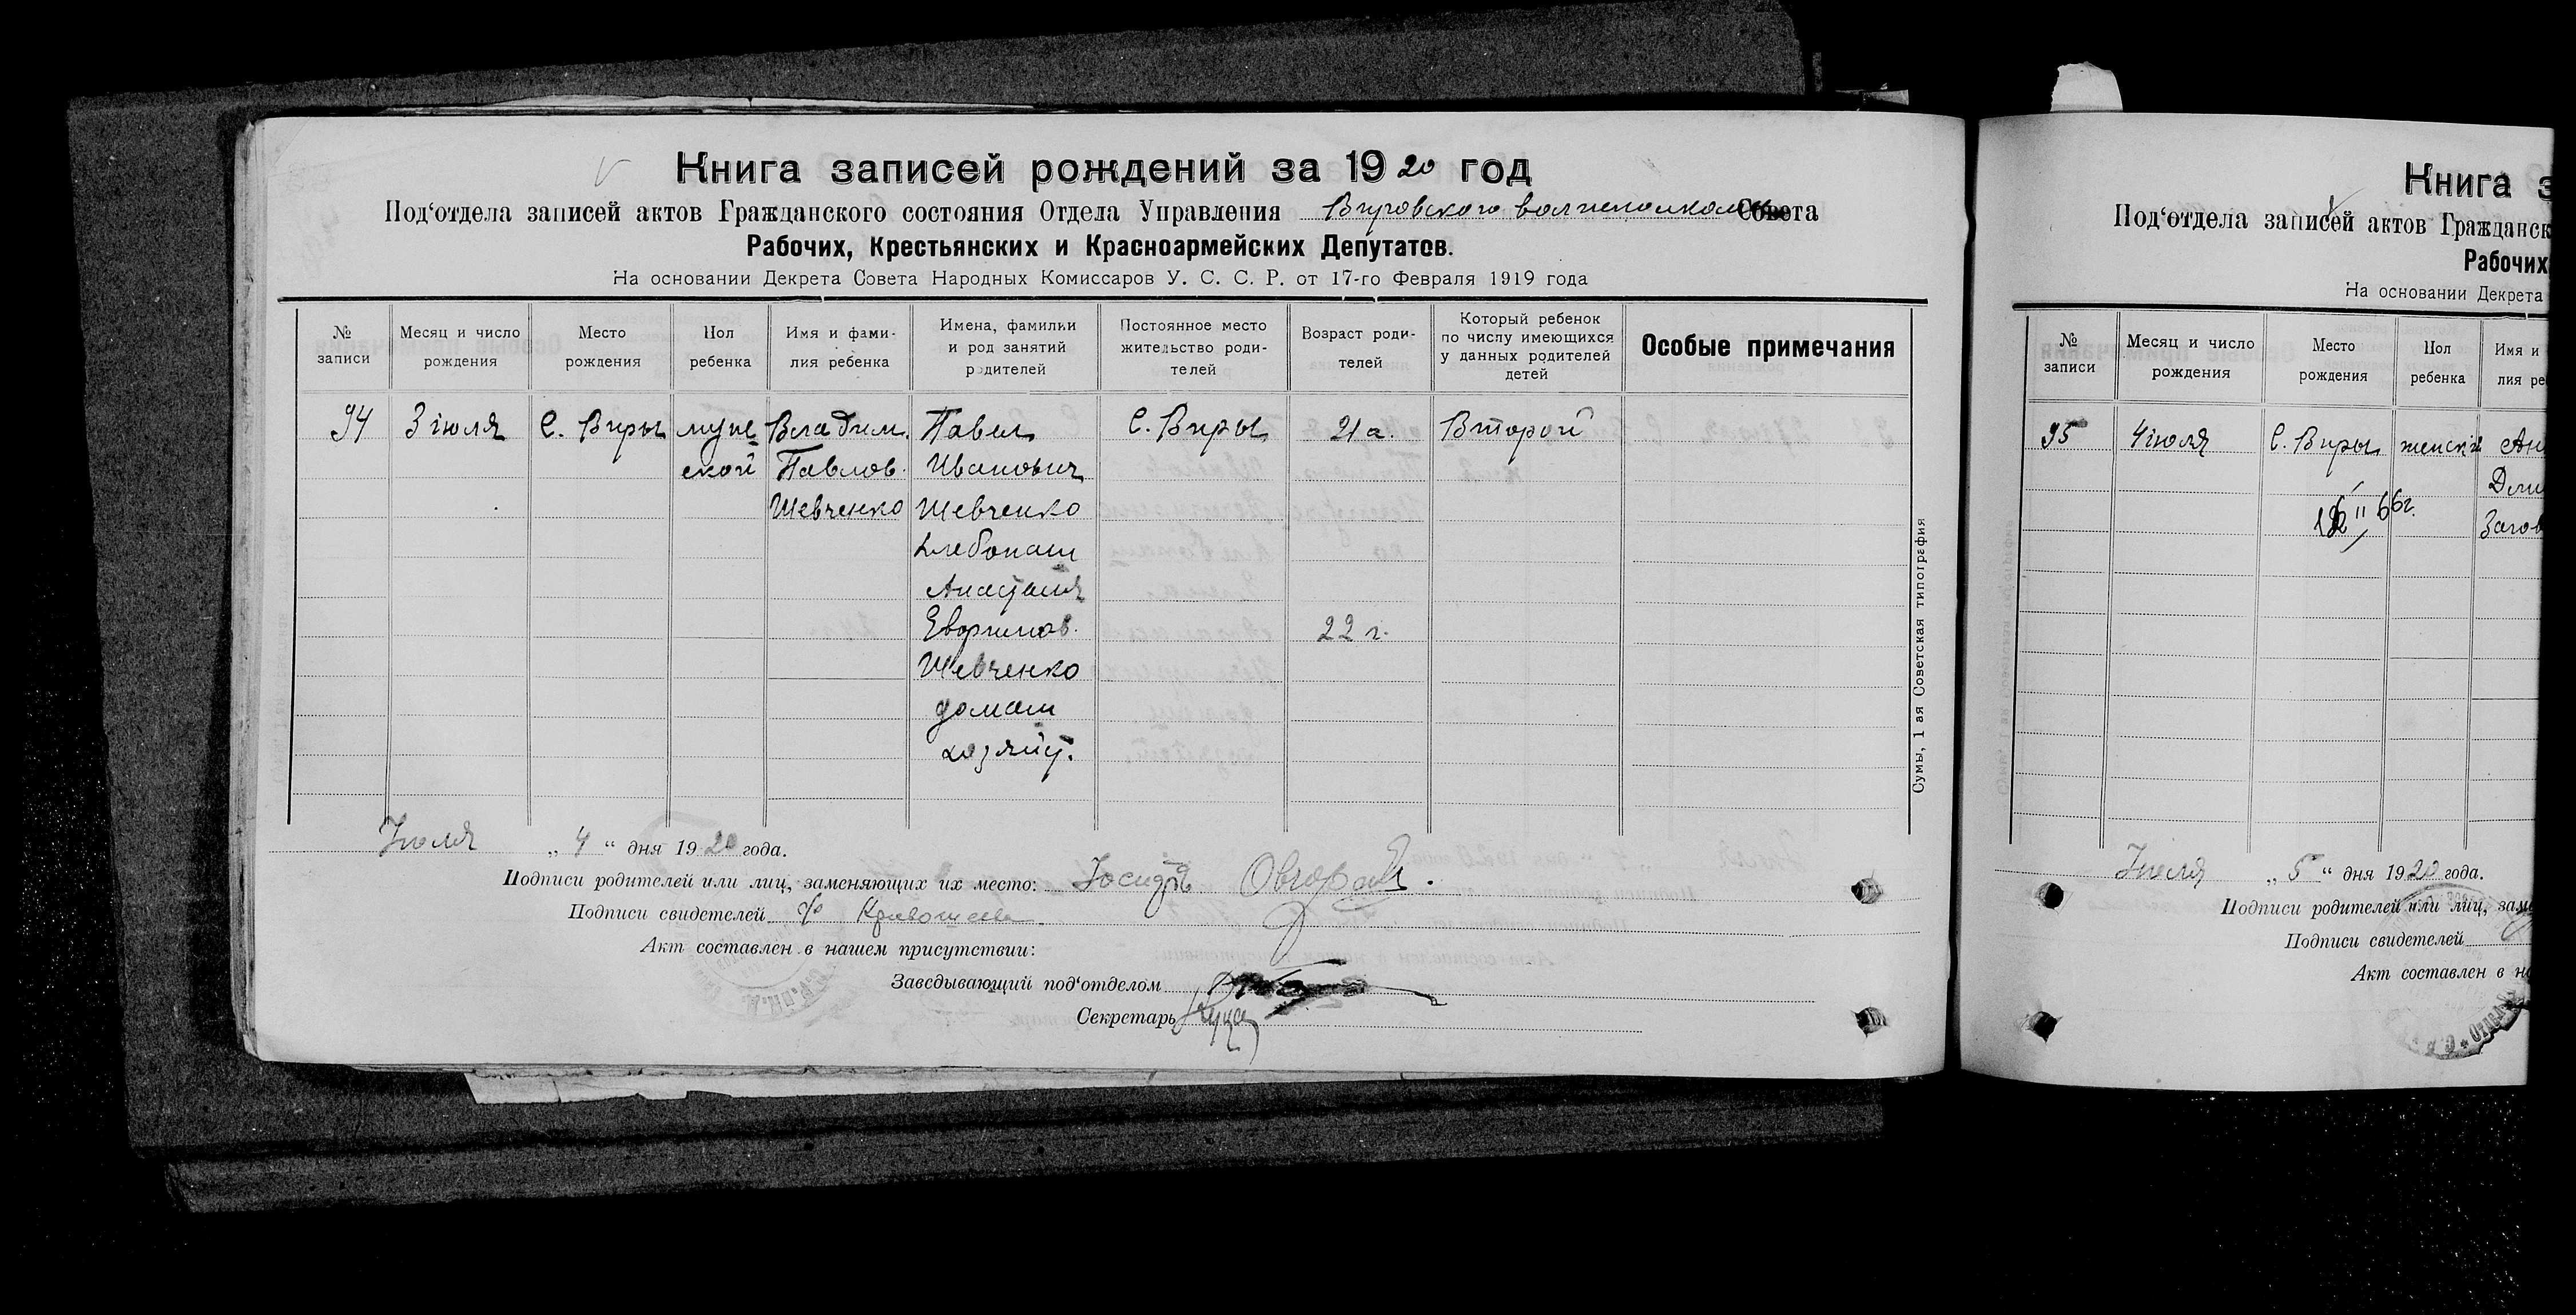 Книга записей рождений за 1920 год
Под‘отдела записей актов Гражданского состояния Отдела Управления Вировского волисполкома Совета
Рабочих, Крестьянских и Красноармейских Депутатов.
На основании Декрета Совета Народных Комиссаров У. С. С. Р. от 17-го Февраля 1919 года
№ записи
Месяц и число рождения
Место рождения
Пол ребенка
Имя и фами-
лия ребенка
Имена, фамилии
и род занятий
родителей
Постоянное место
жительство роди-
телей
Возраст роди-
телей
Который ребенок
по числу имеющихся
у данных родителей
детей
Особые примечания
94
3 июля
С. Виры
муже
ской
Владим.
Павлов.
Шевченко
Павел
Иванович
Шевченко
хлебопаш
Анастасия
Шевченко
домаш
хозяйст.
С. Виры
21 г.
22 г.
Второй
Сумы, 1 ая Советская типография
Июля „ 4 “ дня 1920 года.
Подписи родителей или лиц, заменяющих их место:
Подписи свидетелей
Акт составлен в нашем присутствии:
Заведывающий под‘отделом
Секретарь
Книга з
Под‘отдела записей актов Гражданск
Рабочих
На основании Декрета
№ записи
Месяц и число
рождения
Место
рождения
Пол
ребенка
Имя и
лия ре
95
4 июля
С. Виры
женски
Ан
Дми
Загов
Июля „ 5 “ дня 1920 года.
Подписи родителей или лиц, заме
Подписи свидетелей
Акт составлен в н